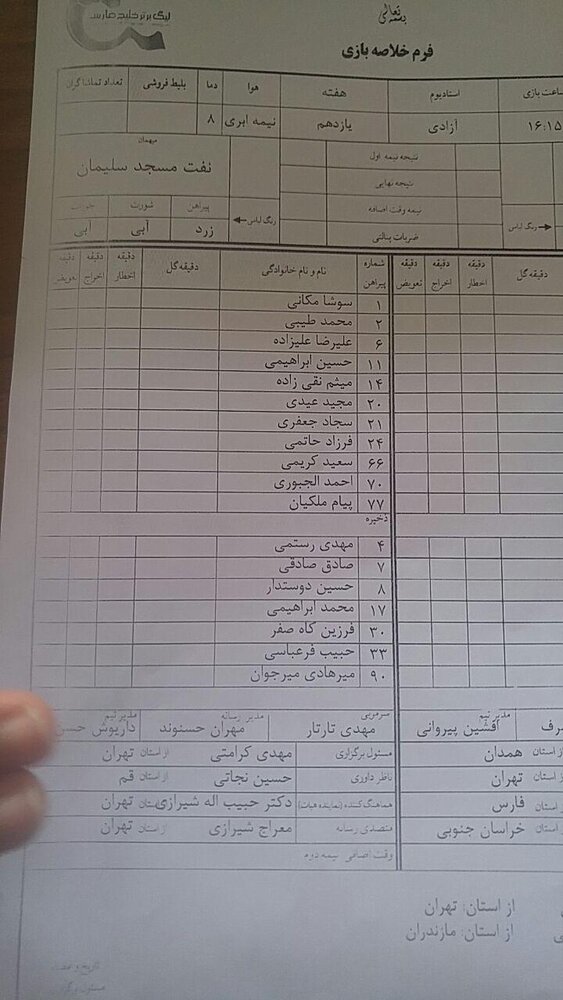 بسمه تعالی
لیگ برتر خلیج فارس
فرم خلاصه بازی
ساعت بازی استادیوم هفته هوا دما بلیط فروشی تعداد تماشاگران
۱۶:۱۵ آزادی یازدهم نیمه ابری ۸
میهمان
نفت مسجد سلیمان
نتیجه نیمه اول
نتیجه نهایی
نیمه وقت اضافه
ضربات پنالتی
رنگ لباس پیراهن شورت جوراب
رنگ لباس زرد آبی آبی
دقیقه گل دقیقه اخطار دقیقه اخراج دقیقه تعویض شماره پیراهن نام و نام خانوادگی دقیقه گل دقیقه اخطار دقیقه اخراج دقیقه تعویض
۱ سوشا مکانی
۲ محمد طیبی
۶ علیرضا علیزاده
۱۱ حسین ابراهیمی
۱۴ میثم نقی زاده
۲۰ مجید عیدی
۲۱ سجاد جعفری
۲۴ فرزاد حاتمی
۶۶ سعید کریمی
۷۰ احمد الجبوری
۷۷ پیام ملکیان
ذخیره
۴ مهدی رستمی
۷ صادق صادقی
۸ حسین دوستدار
۱۷ محمد ابراهیمی
۳۰ فرزین گاه صفر
۳۳ حبیب فرعباسی
۹۰ میرهادی میرجوان
مدیر تیم سرمربی مدیر رسانه مدیر تیم
افشین پیروانی مهدی تارتار مهران حسنوند داریوش حسن
از استان همدان مسئول برگزاری مهدی کرامتی از استان تهران
از استان تهران ناظر داوری حسین نجاتی از استان قم
از استان فارس هماهنگ کننده (نماینده هیات) دکتر حبیب اله شیرازی از استان تهران
از استان خراسان جنوبی متصدی رسانه معراج شیرازی از استان تهران
وقت اضافی نیمه دوم
از استان: تهران
از استان: مازندران